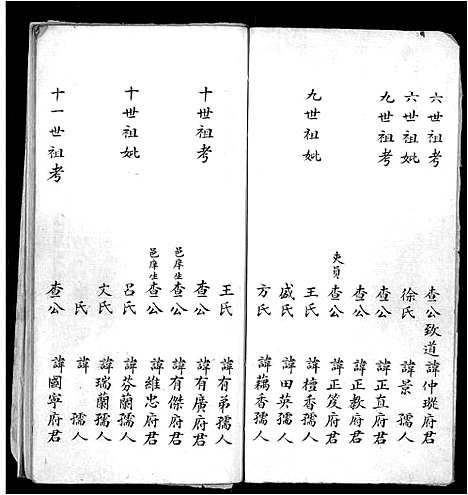 六世祖考 查公致道 諱仲璇府君
六世祖妣 徐氏 諱景 孺人
九世祖考 查公 諱正直府君
查公 諱正教府君
吏員 查公 諱正笈府君
九世祖妣 王氏 諱檀香孺人
盛氏 諱田英孺人
方氏 諱藕香孺人
王氏 諱有弟孺人
十世祖考 查公 諱有廣府君
邑庠生 查公 諱有傑府君
邑庠生 查公 諱維忠府君
十世祖妣 呂氏 諱芬蘭孺人
文氏 諱瑞蘭孺人
氏 諱 孺人
十一世祖考 查公 諱國寧府君